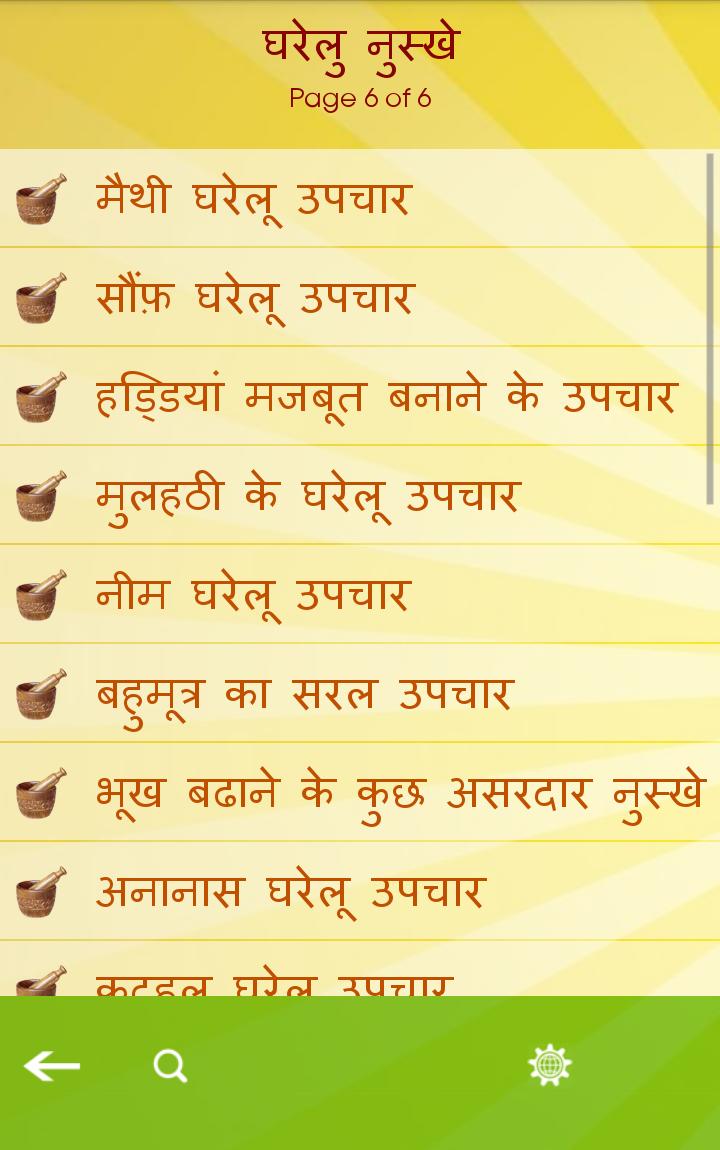 घरेलु नुस्खे
Page 6 of 6
मैथी घरेलू उपचार
सौंफ़ घरेलू उपचार
हड्डियां मजबूत बनाने के उपचार
मुलहठी के घरेलू उपचार
नीम घरेलू उपचार
बहुमूत्र का सरल उपचार
भूख बढाने के कुछ असरदार नुस्खे
अनानास घरेलू उपचार
कटहल घरेलू उपचार